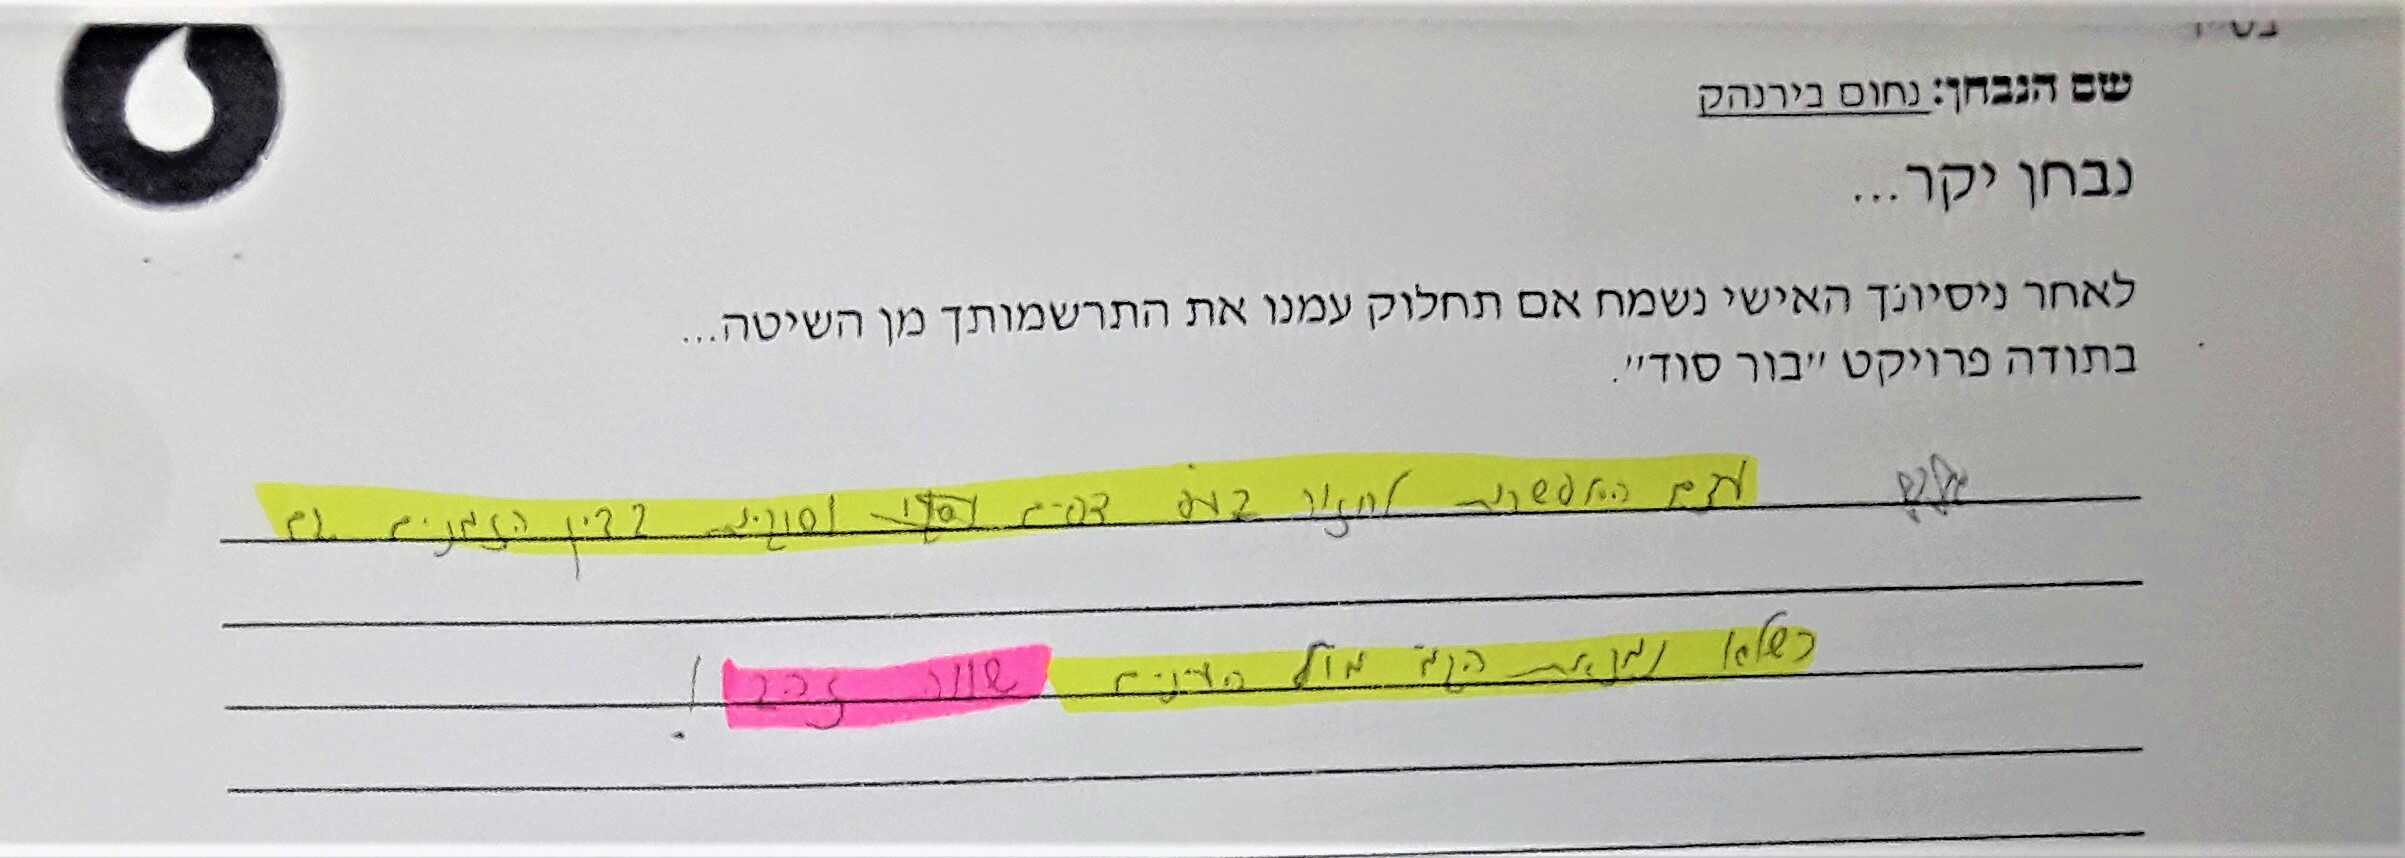 בס"ד
שם הנבחן: נחום בירנהק
נבחן יקר...
לאחר ניסיונך האישי נשמח אם תחלוק עמנו את התרשמותך מן השיטה...
בתודה פרויקט "בור סוד".
עצם האפשרות לחזור בע"פ דפים וסוגיות בבין הזמנים גם
כשלא נמצאת הגמ' מול העינים שווה זהב!